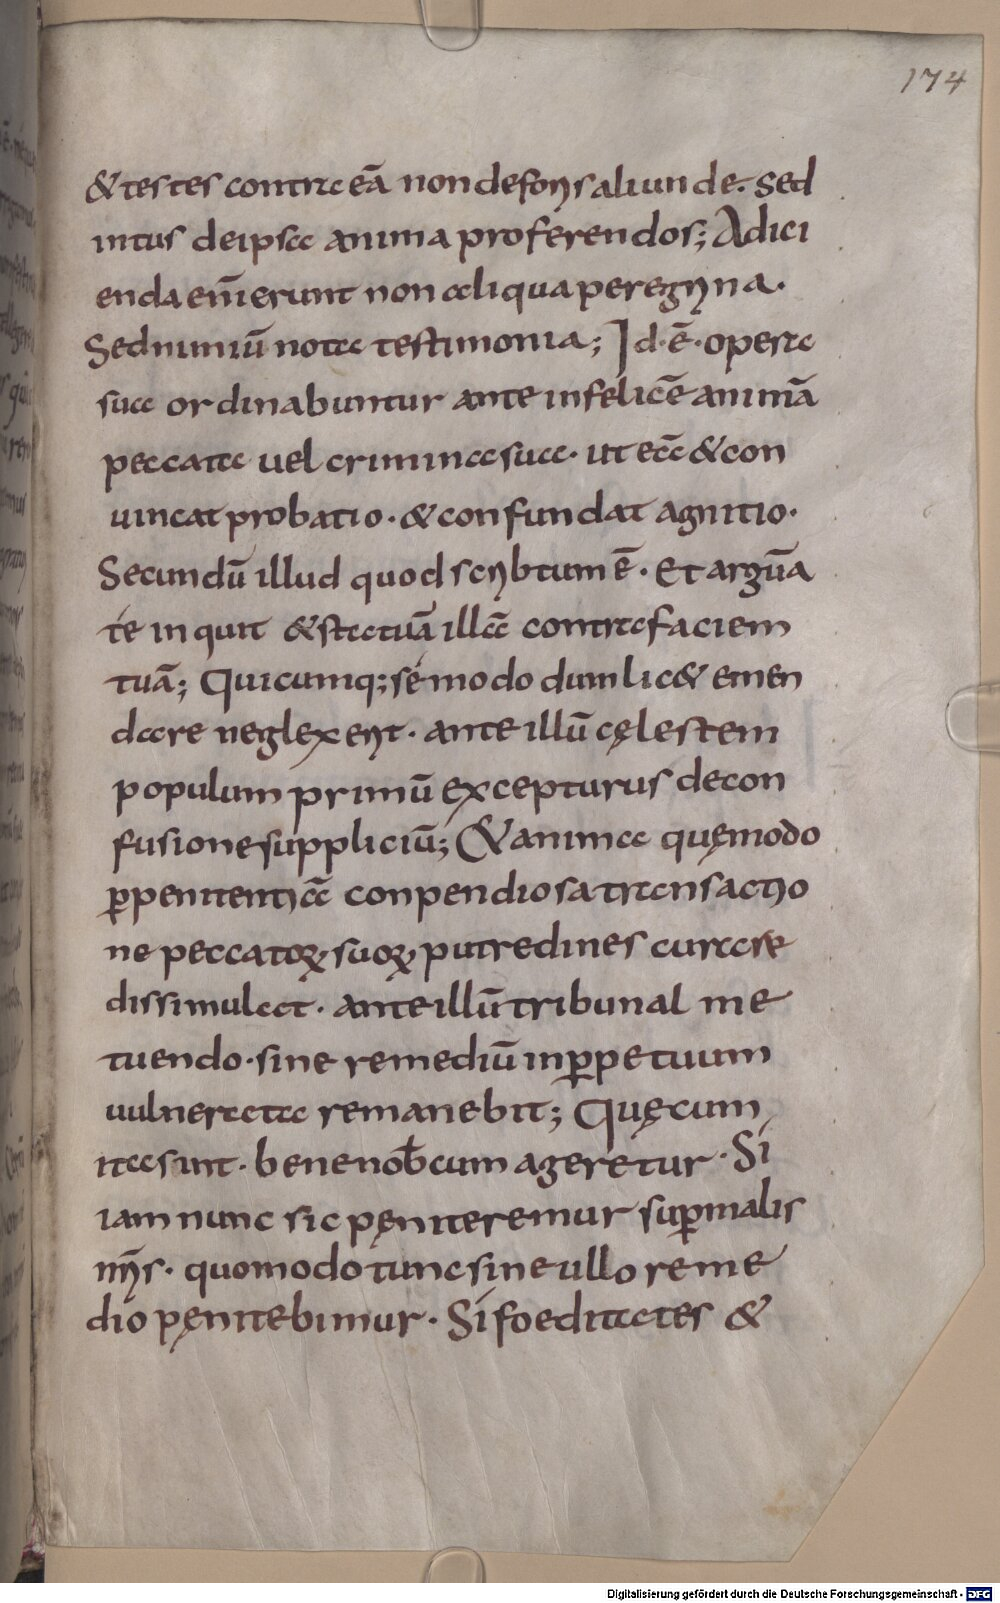 174
& testes contra eā non de foris aliunde. Sed
intus de ipsa anima proferendos; Adici
enda em̄ erunt non aliqua peregrina.
Sed nimiū nota testimonia; Id·ē·opera
sua ordinabuntur ante infelicē animā
peccata uel crimina sua· ut eā & con
uincat probatio· & confundat agnitio·
Secundū illud quod scribtum ē· Et arguā
té inquit & statuā illā contra faciem
tuā; Quicumq; sé modo dum lic& emen
dare neglexerit· ante illū cęlestem
populum primū excepturus de con
fusione suppliciū; & anima quę modo
ꝑ penitentiā conpendiosa transactio
ne peccatoꝝ suoꝝ putredines curare
dissimulat· ante illū tribunal me
tuendo· sine remediū in ꝑpetuum
uulnerata remanebit; Quę cum
ita sint· bene nob̄ cum ageretur· Sí
iam nunc sic pęniteremur suꝑ malis
nr̄is· quomodo tunc sine ullo reme
dio pęnitebimur· Sí foeditates &
Digitalisierung gefördert durch die Deutsche Forschungsgemeinschaft - DFG